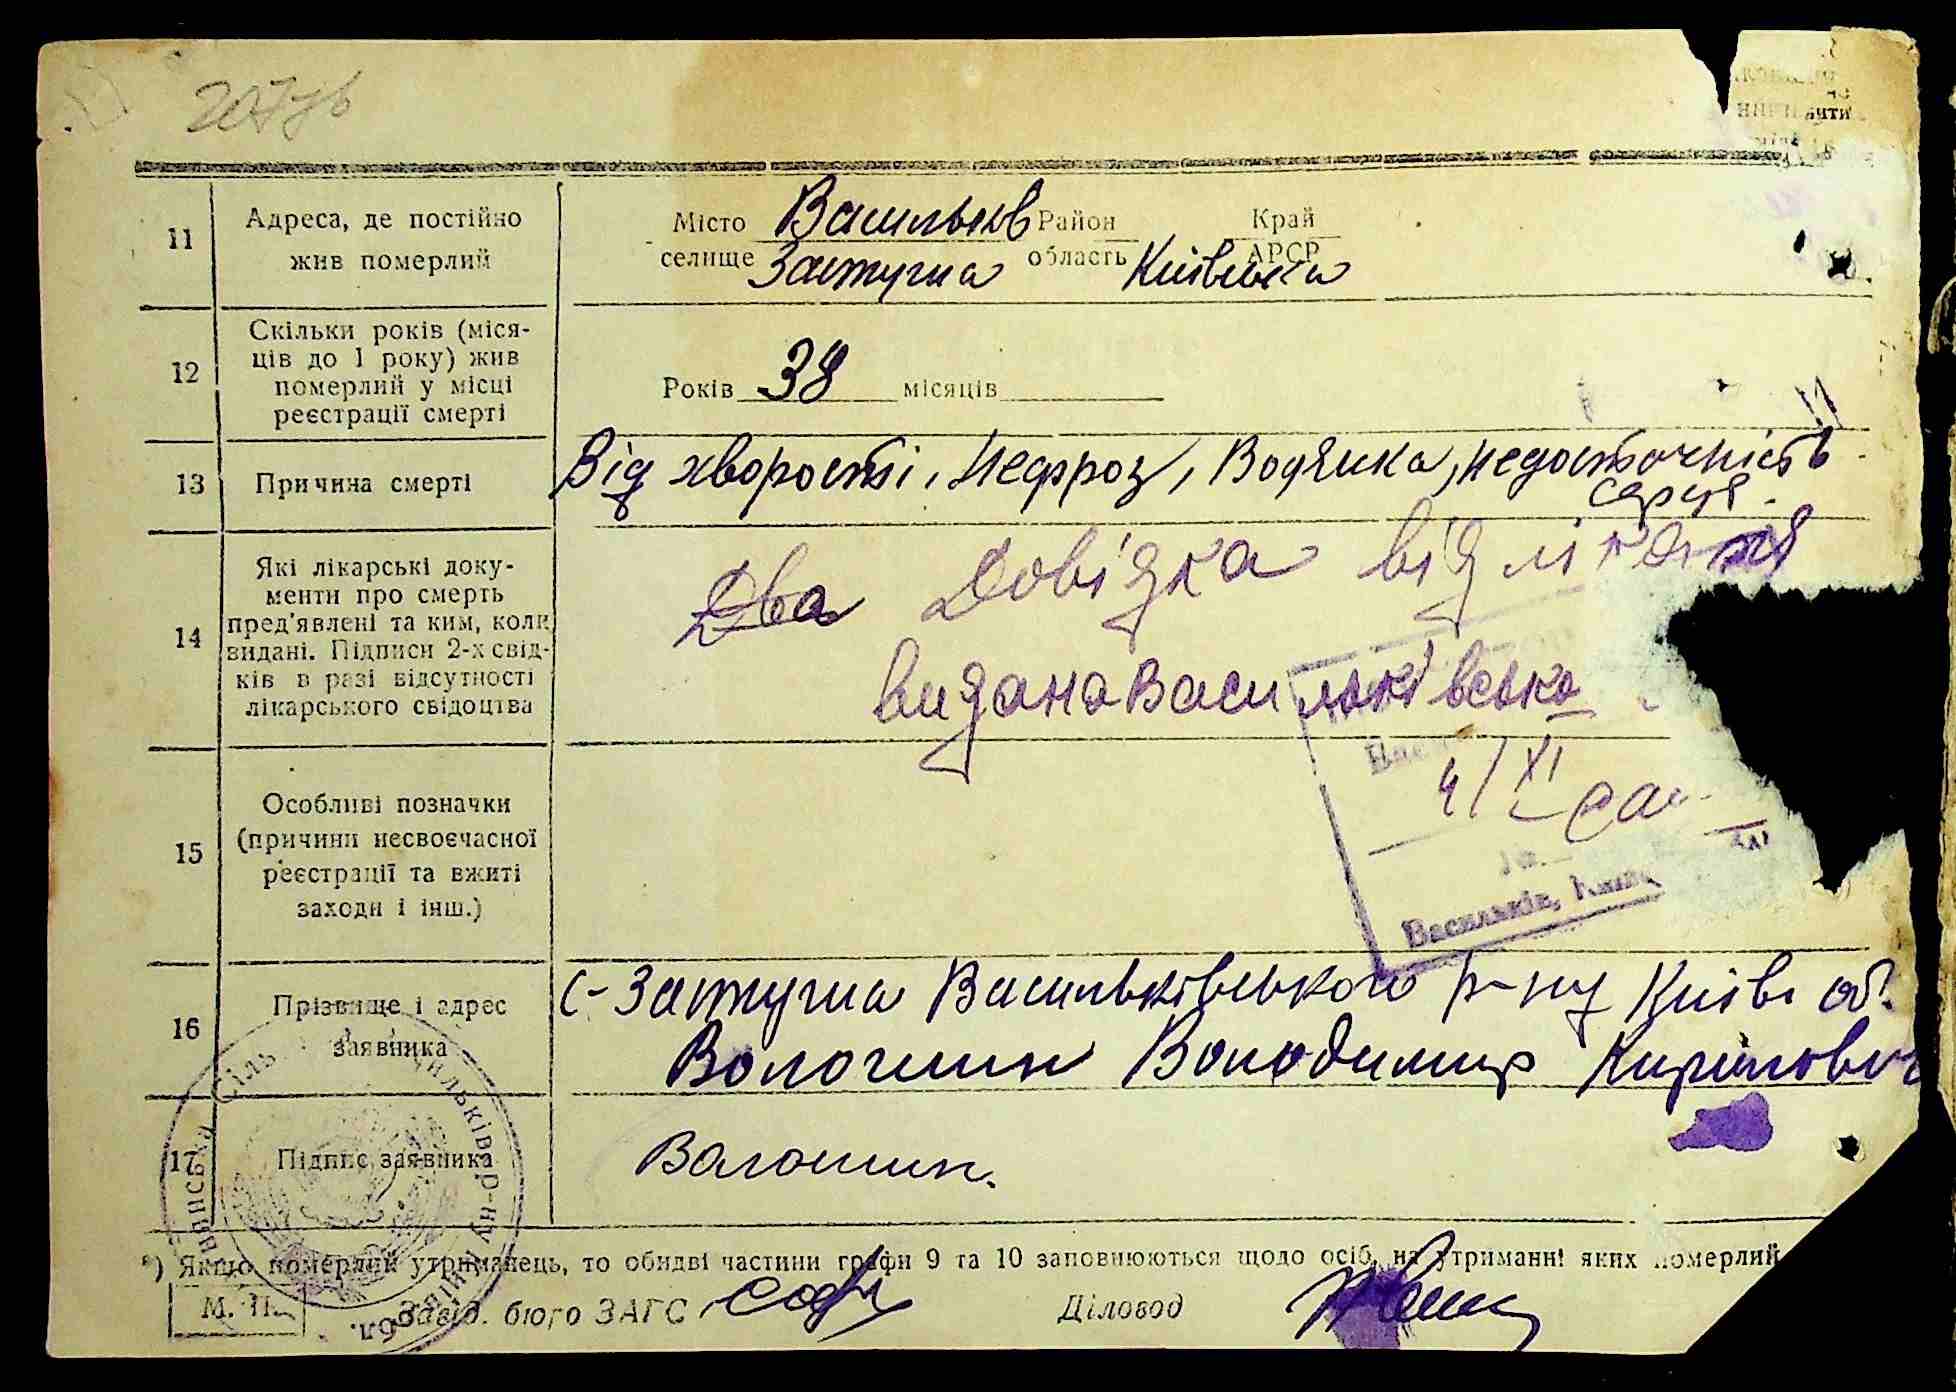 11
Адреса, де постійно
жив померлий
Місто Васильков Район Край
селище Застугна область Київська АРСР
12
Скільки років (міся-
ців до 1 року) жив
померлий у місці
реєстрації смерті
Років 38 місяців
13
Причина смерті
Від хворості, Нефроз, Водянка, недосточність
серця.
14
Які лікарські доку-
менти про смерть
пред'явлені та ким, коли
видані. Підписи 2-х свід-
ків в разі відсутності
лікарського свідоцтва
Два Довідка від лікаря
видана Васильківсько
4/XI
Васильків,
15
Особливі позначки
(причини несвоєчасної
реєстрації та вжиті
заходи і інш.)
16
Прізвище і адрес
заявника
с-Застугна Васильківського р-ну Київс об.
Волошин Володимир Кирилович
17
Підпис заявника
Волошин.
*) Якщо померлий утриманець, то обидві частини графи 9 та 10 заповнюються щодо осіб, на утриманні яких померлий
М. П.
Завід. бюро ЗАГС
Діловод